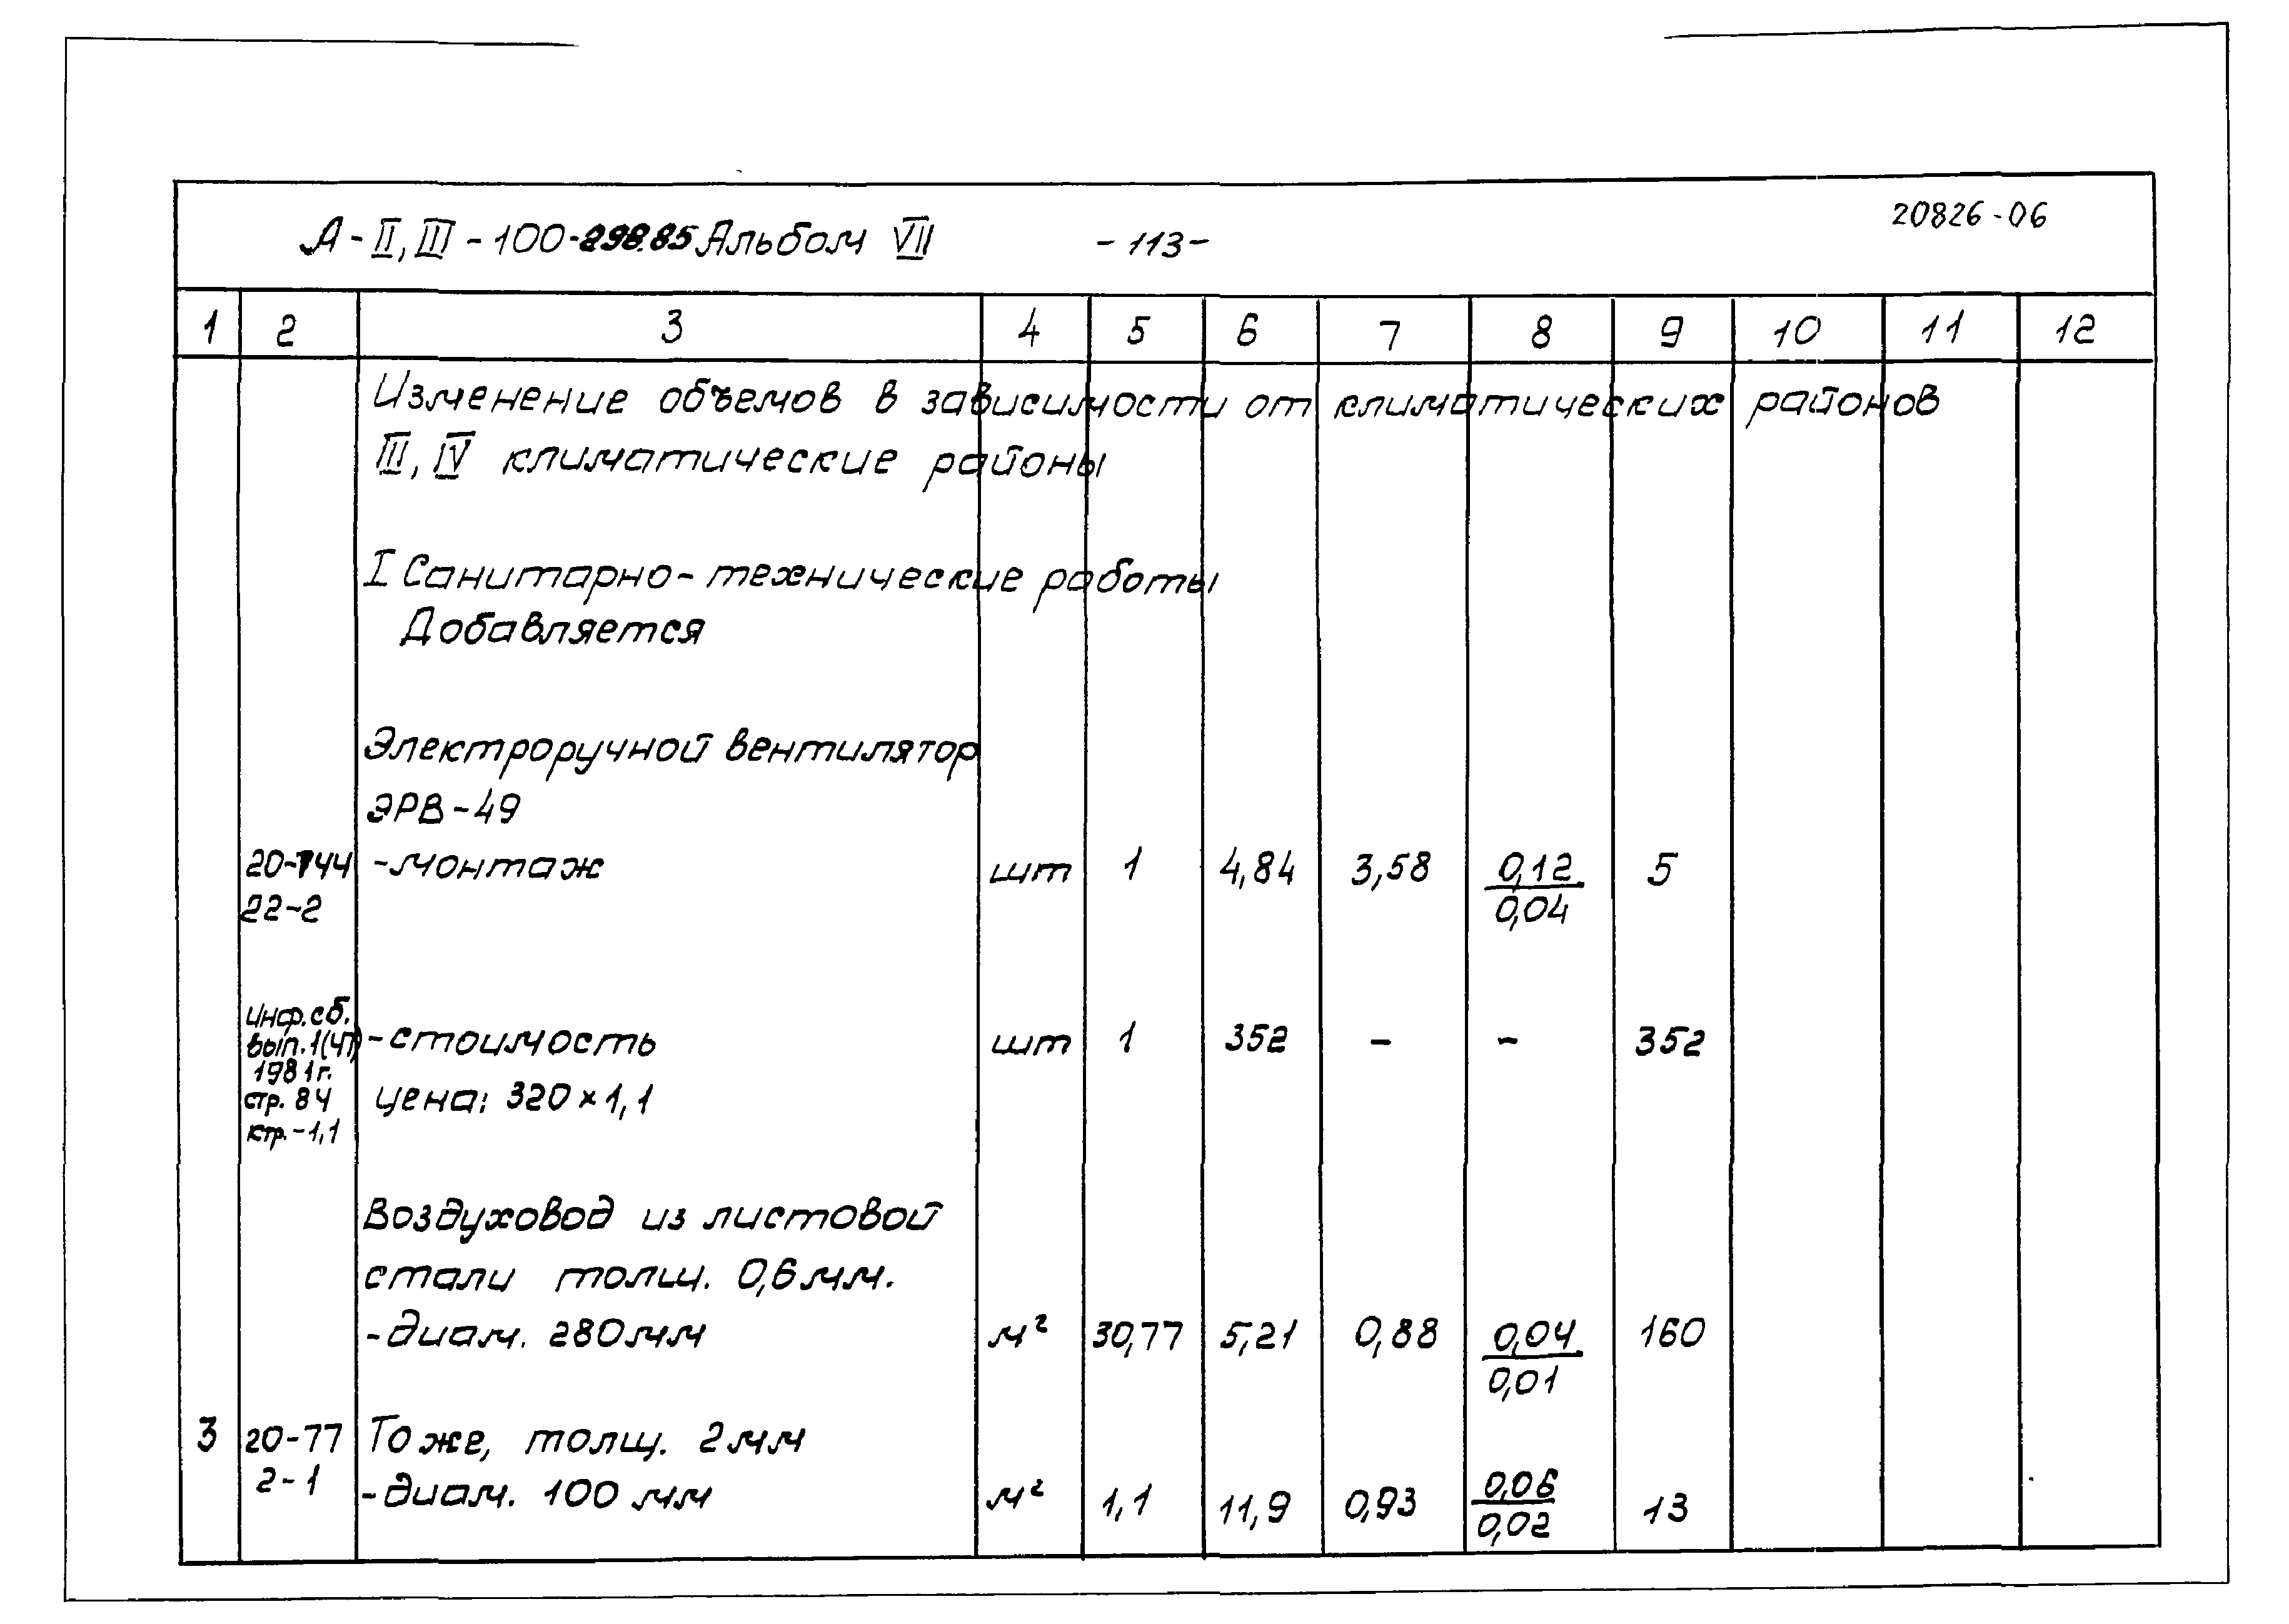 А-II, III-100-298.85 Альбом VII -113- 20826-06
1 2 3 4 5 6 7 8 9 10 11 12
Изменение объемов в зависимости от климатических районов
III, IV климатические районы
I Санитарно-технические работы
Добавляется
Электроручной вентилятор
ЭРВ-49
20-744 -монтаж шт 1 4,84 3,58 0,12 5
22-2 0,04
Инф.сб.
вып.1(41) -стоимость шт 1 352 - - 352
1981г.
стр. 84 цена: 320×1,1
ктр.-1,1
Воздуховод из листовой
стали толщ. 0,6мм.
-диам. 280мм м² 30,77 5,21 0,88 0,04 160
0,01
3 20-77 То же, толщ. 2мм
2-1 -диам. 100 мм м² 1,1 11,9 0,93 0,06 13
0,02